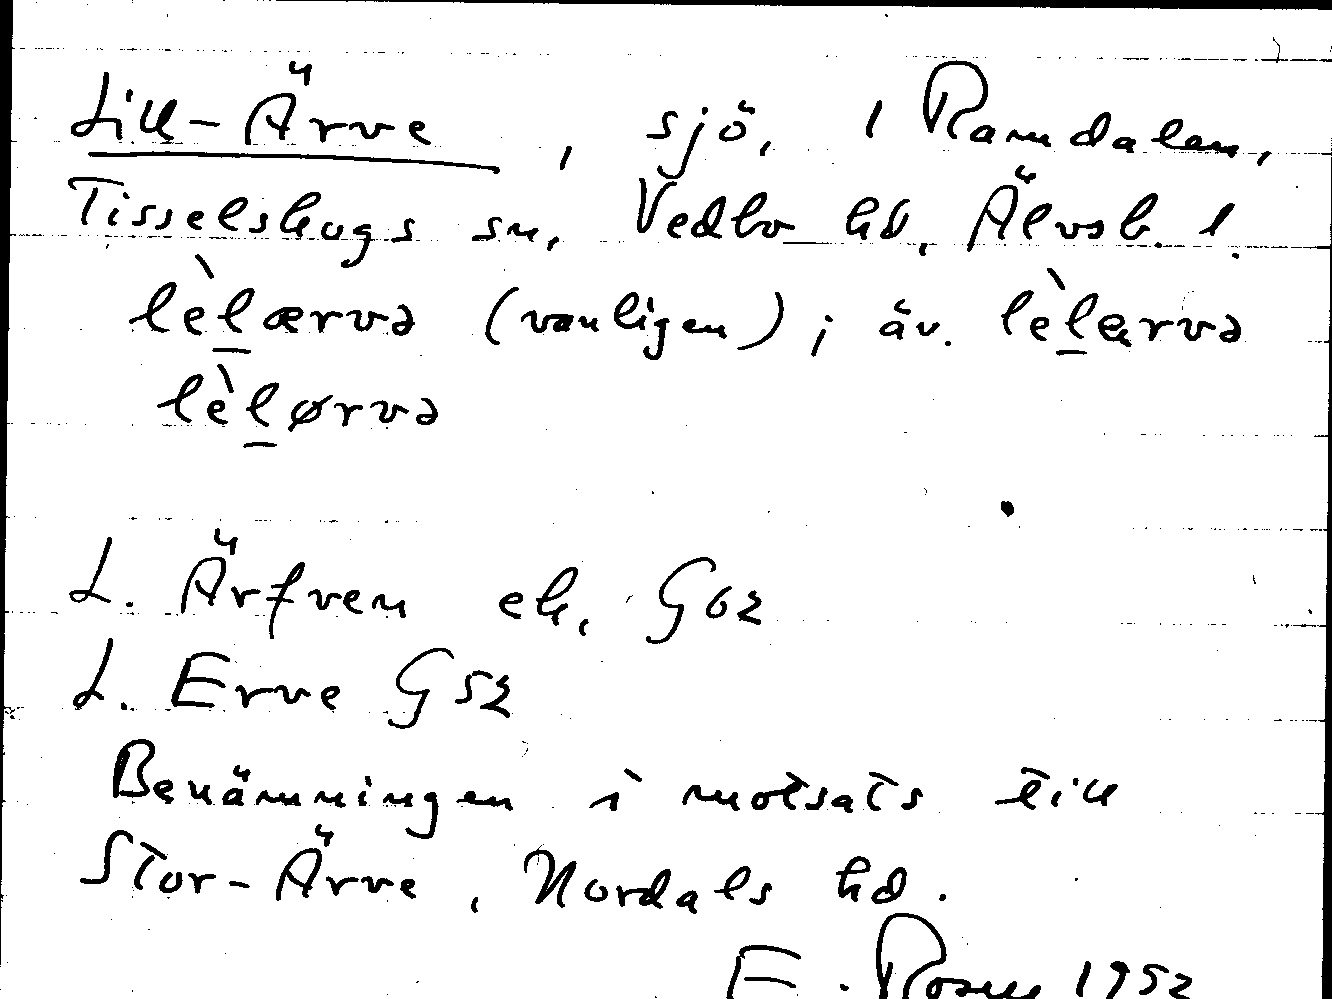 Lill-Ärve, sjö, i Ramdalen,
Tisselskogs sn, Vedbo hd, Älvsb. l.
lèlærvə (vanligen); äv. lèlɐrvə
lèlørvə
L. Ärfven ek, G62
L. Erve G52
Benämningen i motsats till
Stor-Ärve, Nordals hd.
E. Rosell 1952